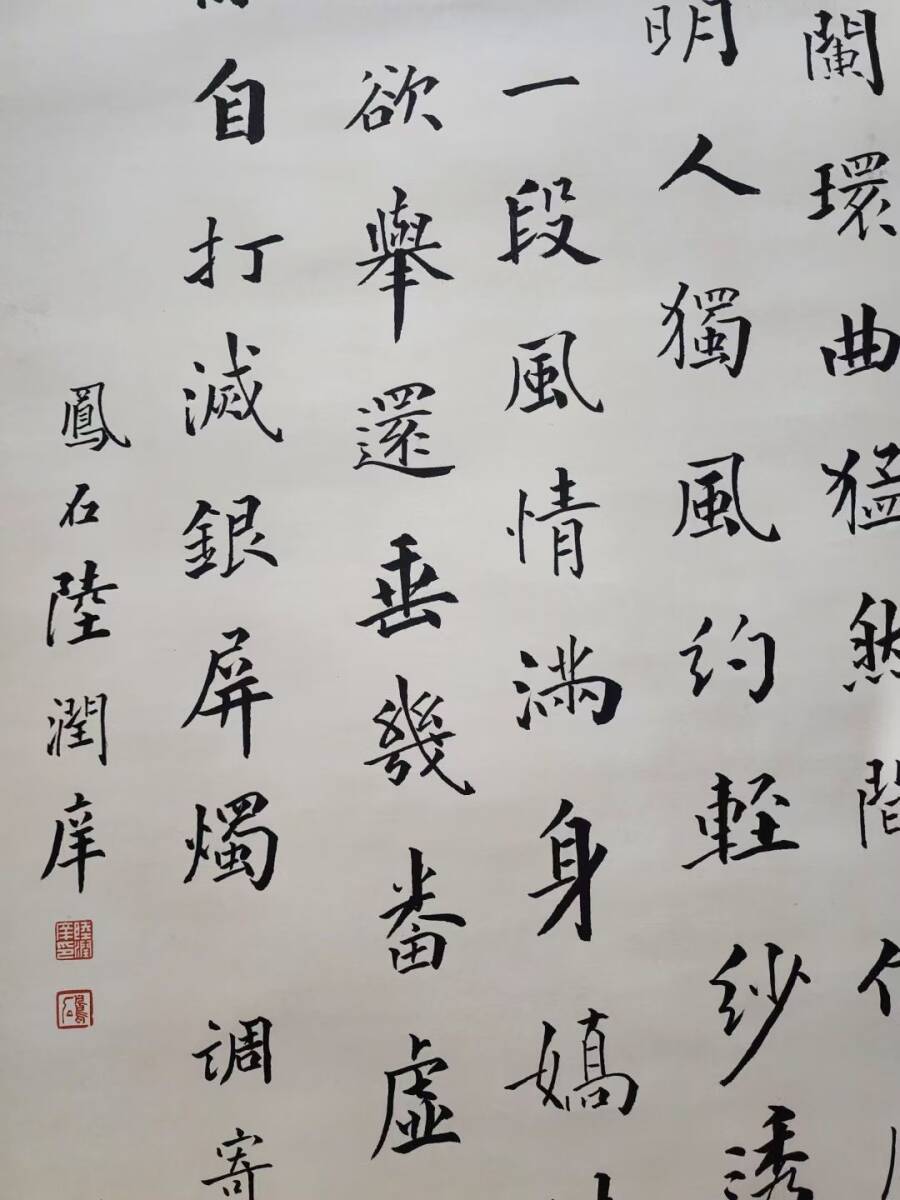 闌環曲猛然間
明人獨風約輕紗透
一段風情滿身嬌
欲舉還垂幾番虛
自打滅銀屏燭 調寄
鳳石陸潤庠
陸潤庠印
鳳石